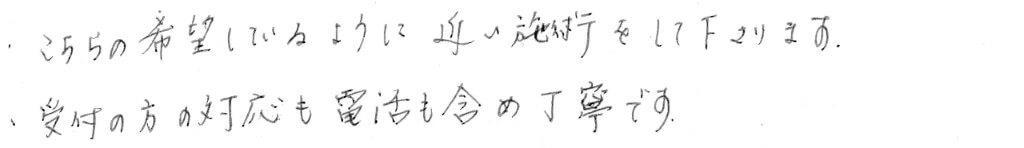 ・こちらの希望しているように近い施術をして下さります.
・受付の方の対応も電話も含め丁寧です.